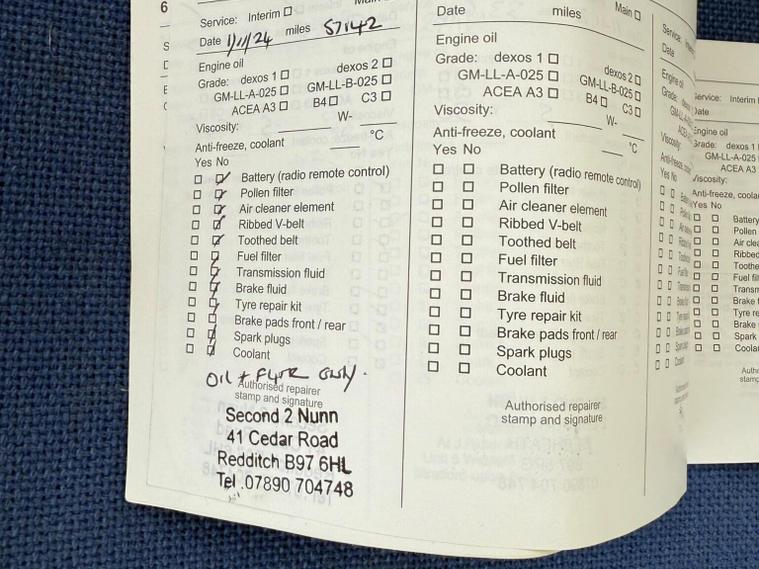 6
Service: Interim ☐
Date 1/11/24 miles 57142
Engine oil
Grade: dexos 1 ☐ dexos 2 ☐
GM-LL-A-025 ☐ GM-LL-B-025 ☐
ACEA A3 ☐ B4 ☐ C3 ☐
Viscosity: W-
Anti-freeze, coolant °C
Yes No
Battery (radio remote control)
Pollen filter
Air cleaner element
Ribbed V-belt
Toothed belt
Fuel filter
Transmission fluid
Brake fluid
Tyre repair kit
Brake pads front / rear
Spark plugs
Coolant
Oil + Filter only.
Authorised repairer
stamp and signature
Second 2 Nunn
41 Cedar Road
Redditch B97 6HL
Tel 07890 704748
Main ☐
Date miles
Engine oil
Grade: dexos 1 ☐ dexos 2 ☐
GM-LL-A-025 ☐ GM-LL-B-025 ☐
ACEA A3 ☐ B4 ☐ C3 ☐
Viscosity: W-
Anti-freeze, coolant °C
Yes No
Battery (radio remote control)
Pollen filter
Air cleaner element
Ribbed V-belt
Toothed belt
Fuel filter
Transmission fluid
Brake fluid
Tyre repair kit
Brake pads front / rear
Spark plugs
Coolant
Authorised repairer
stamp and signature
Service:
Date
Engine oil
Grade:
Viscosity:
Yes No
Service: Interim
Date
Engine oil
Grade: dexos 1
GM-LL-A-025
ACEA A3
Viscosity:
Anti-freeze, coola
Yes No
Battery
Pollen
Air clea
Ribbed
Toothe
Fuel fil
Transm
Brake f
Tyre re
Brake
Spark
Coola
Autho
stamp